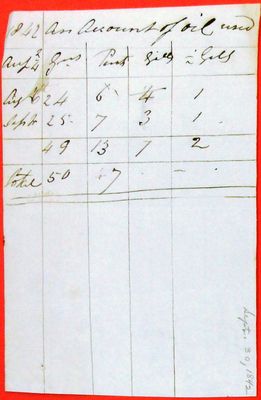 1842 An Account of oil used
Gns Pints Gills ½ Gills
Augt 24 6 4 1
Sept 25 7 3 1
49 13 7 2
Total 50 - -
Sept. 30, 1842